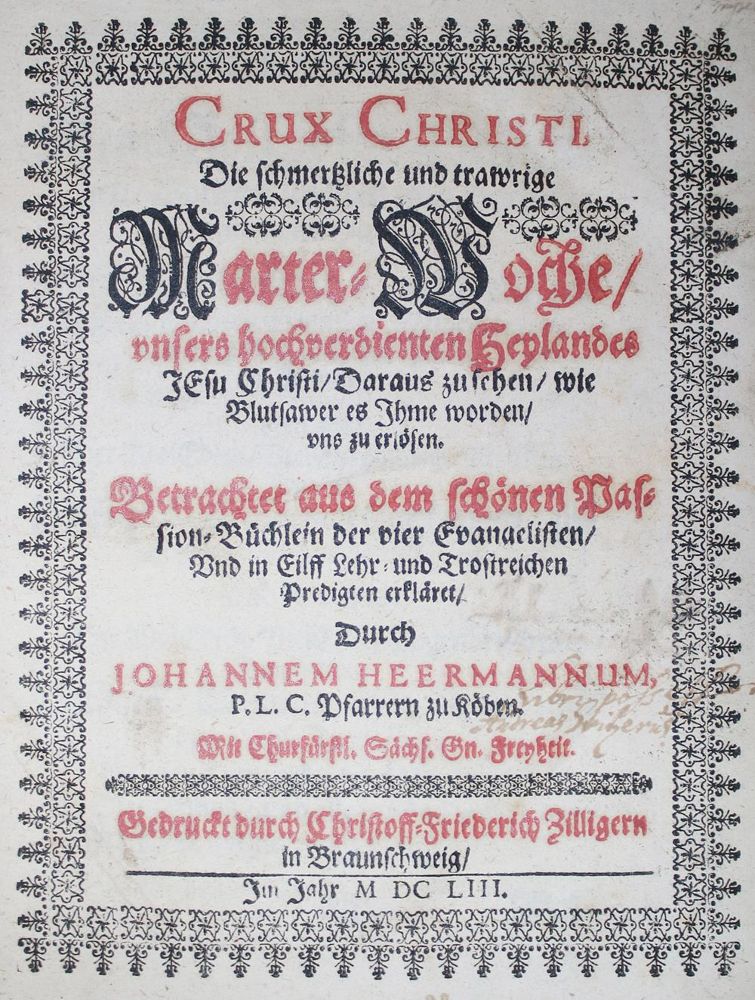 CRUX CHRISTI,
Die schmertzliche und trawrige
Marter-Woche/
vnsers hochverdienten Heylandes
JEsu Christi/ Daraus zu sehen/ wie
Blutsawer es Jhme worden/
vns zu erlösen.
Betrachtet aus dem schönen Pas-
sion-Büchlein der vier Evangelisten/
Vnd in Eilff Lehr- und Trostreichen
Predigten erkläret/
Durch
JOHANNEM HEERMANNUM,
P. L. C. Pfarrern zu Köben.
Mit Churfürstl. Sächs. Gn. Freyheit.
Gedruckt durch Christoff-Friederich Zilligern
in Braunschweig/
Im Jahr M DC LIII.